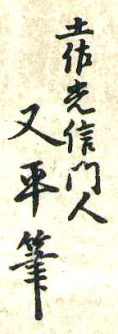 土佐光信門人
又平筆